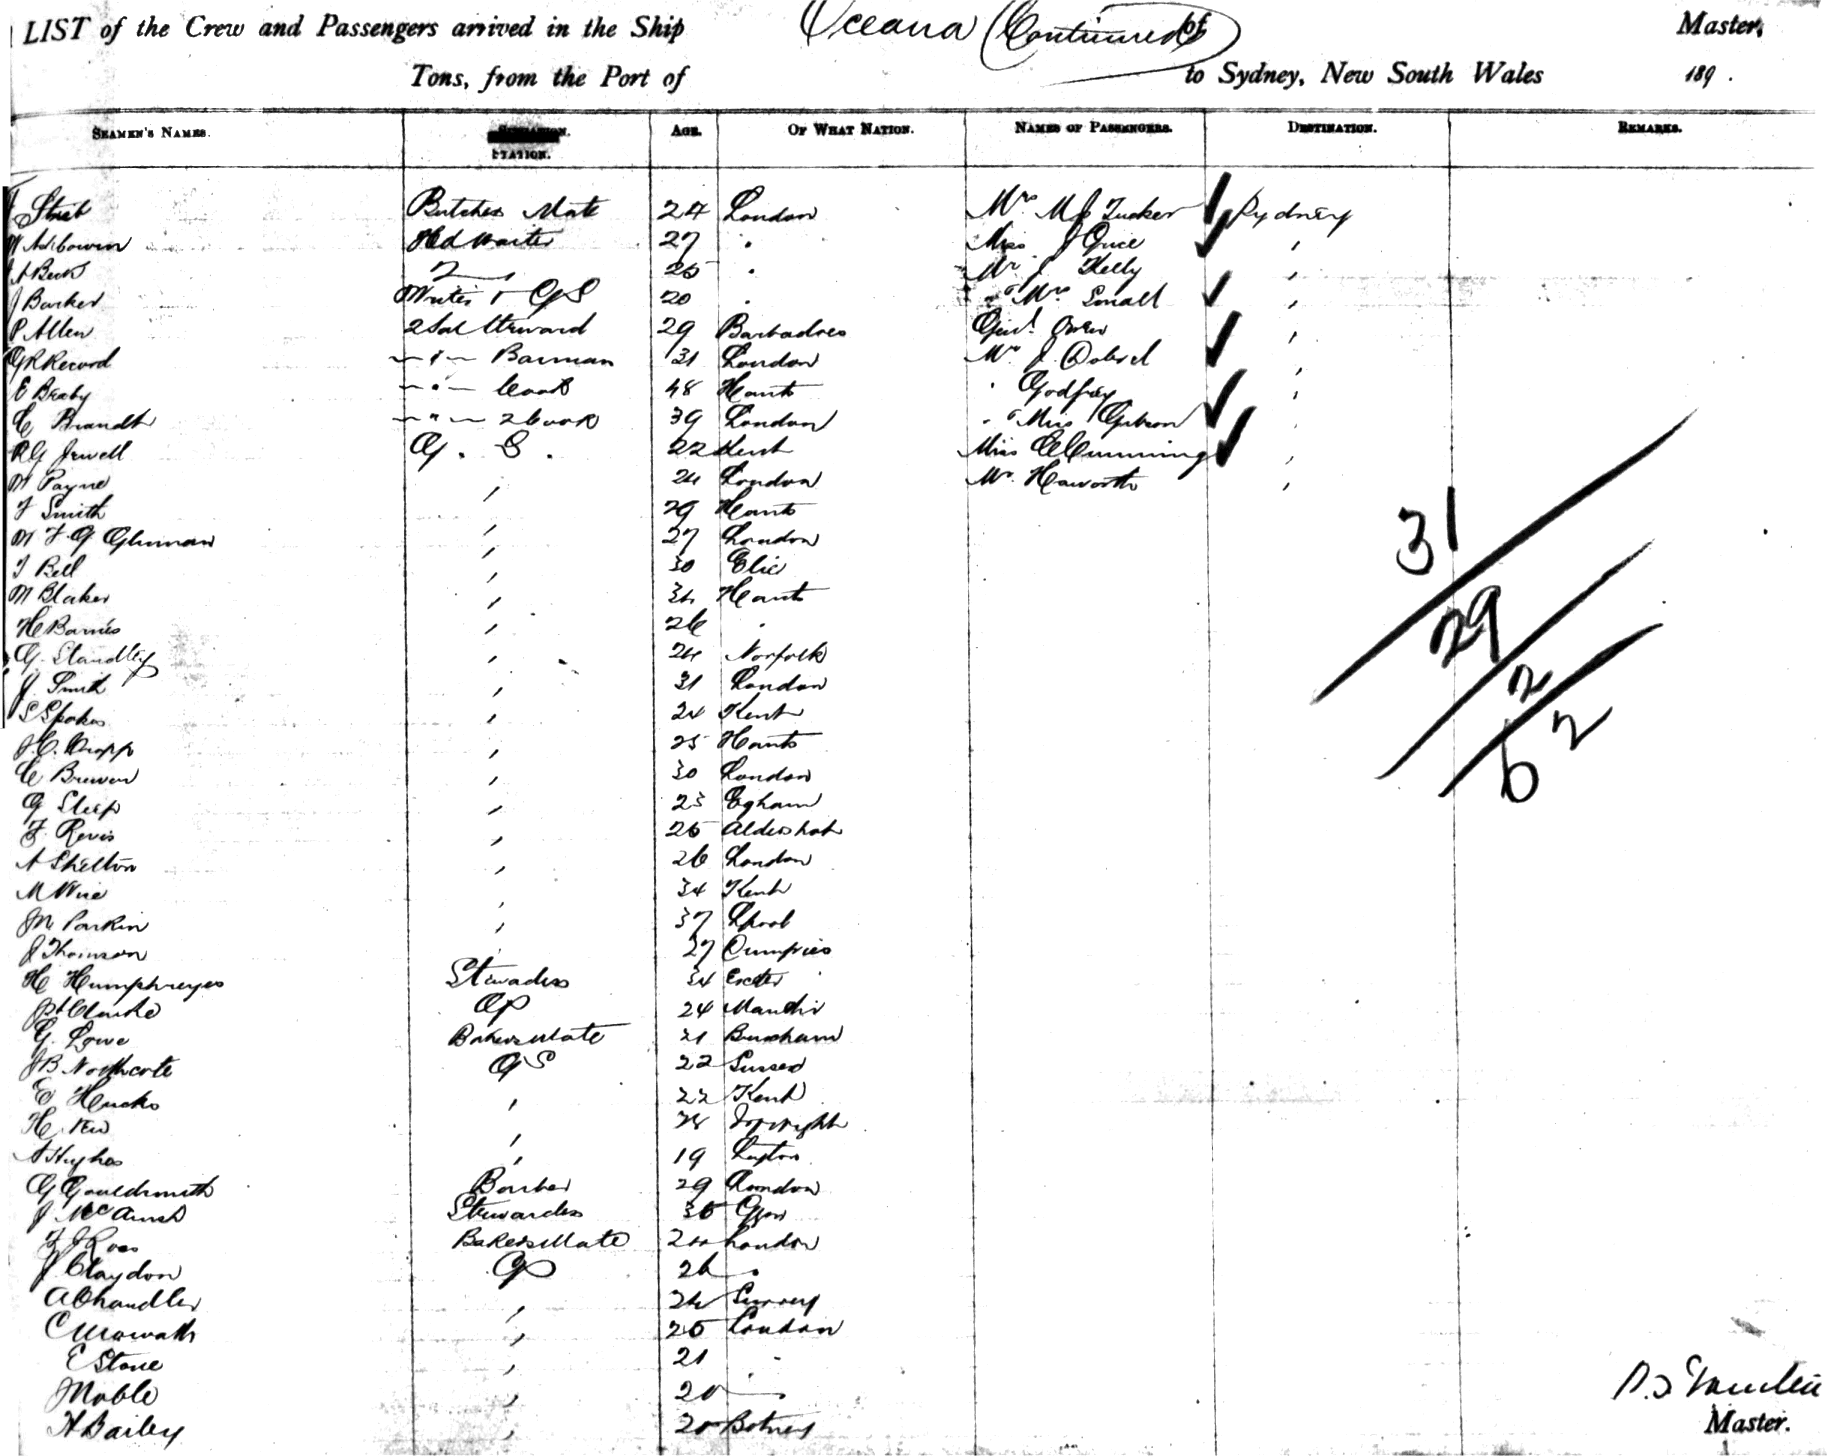 LIST of the Crew and Passengers arrived in the Ship Oceana (Continued) of Master,
Tons, from the Port of to Sydney, New South Wales 189 .
SEAMEN'S NAMES. STATION. AGE. OF WHAT NATION. NAMES OF PASSENGERS. DESTINATION. REMARKS.
Butchers Mate 24 London Mrs Tucker Sydney
Hd Waiter 27 " Miss J "
2 " 25 " Mr J Kelly "
J Barker Writer & GS 20 " " Mrs Small "
P Allen 2 Sal Steward 29 Barbadoes "
G R Record — " — Barman 31 London Mr J. "
E Braby — " — Cook 48 Hants " Godfrey "
C Brandt — " — 2 Cook 39 London " Miss Gibson "
R G Jewell G . S . 22 Kent Miss Cumming "
W Payne " 24 London Mr Haworth "
F Smith " 29 Hants
W F G " 27 London
J Bell " 30 Elie
W Blaker " 34 Hants
H Barnes " 26 "
G. Standley " 24 Norfolk
J. Smith " 31 London
S Spokes " 24 Kent
J. C. " 25 Hants
C Brewer " 30 London
G Sleep " 23 Egham
F. Revis " 25 Aldershot
A Shelton " 26 London
M Wise " 34 Kent
J M Parkin " 37 Lpool
J Thomson " 27 Dumfries
H Humphreys Stewardess 34 Exeter
Clarke GS 24
G. Lowe Bakers Mate 21
J B Northcote GS 22 Sussex
E Hucks " 22 Kent
H. New " 28
A Hughes " 19
G Gouldsmith Barber 29 London
J Stewardess 35
F J Ross Bakers Mate 24 London
J Claydon GS 26 "
A Chandler " 24 Surrey
C " 25 London
E Stone " 21 "
J Noble " 20 "
H Bailey " 20
31
29
2
62
Master.